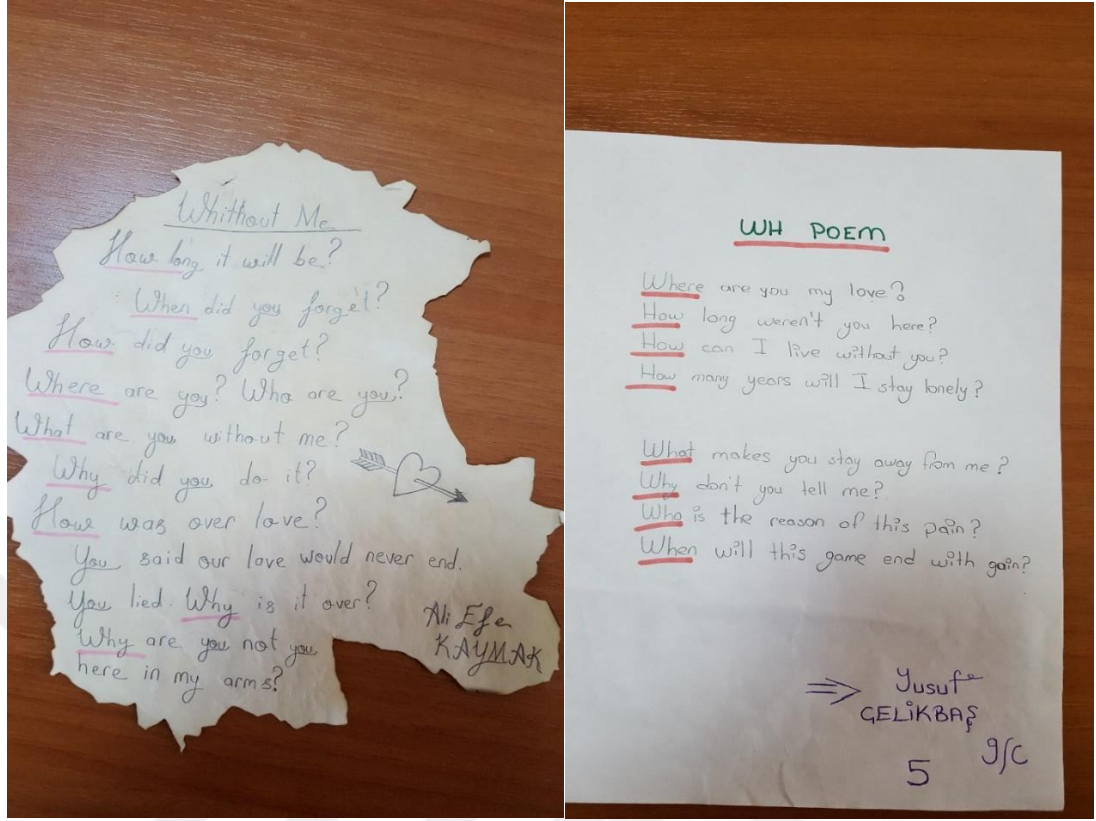 Whithout Me
How long it will be?
When did you forget?
How did you forget?
Where are you? Who are you?
What are you without me?
Why did you do it?
How was over love?
You said our love would never end.
You lied. Why is it over?
Why are you not you
here in my arms?
Ali Efe
KAYMAK
WH POEM
Where are you my love?
How long weren't you here?
How can I live without you?
How many years will I stay lonely?
What makes you stay away from me?
Why don't you tell me?
Who is the reason of this pain?
When will this game end with gain?
Yusuf
ÇELİKBAŞ
9/C
5